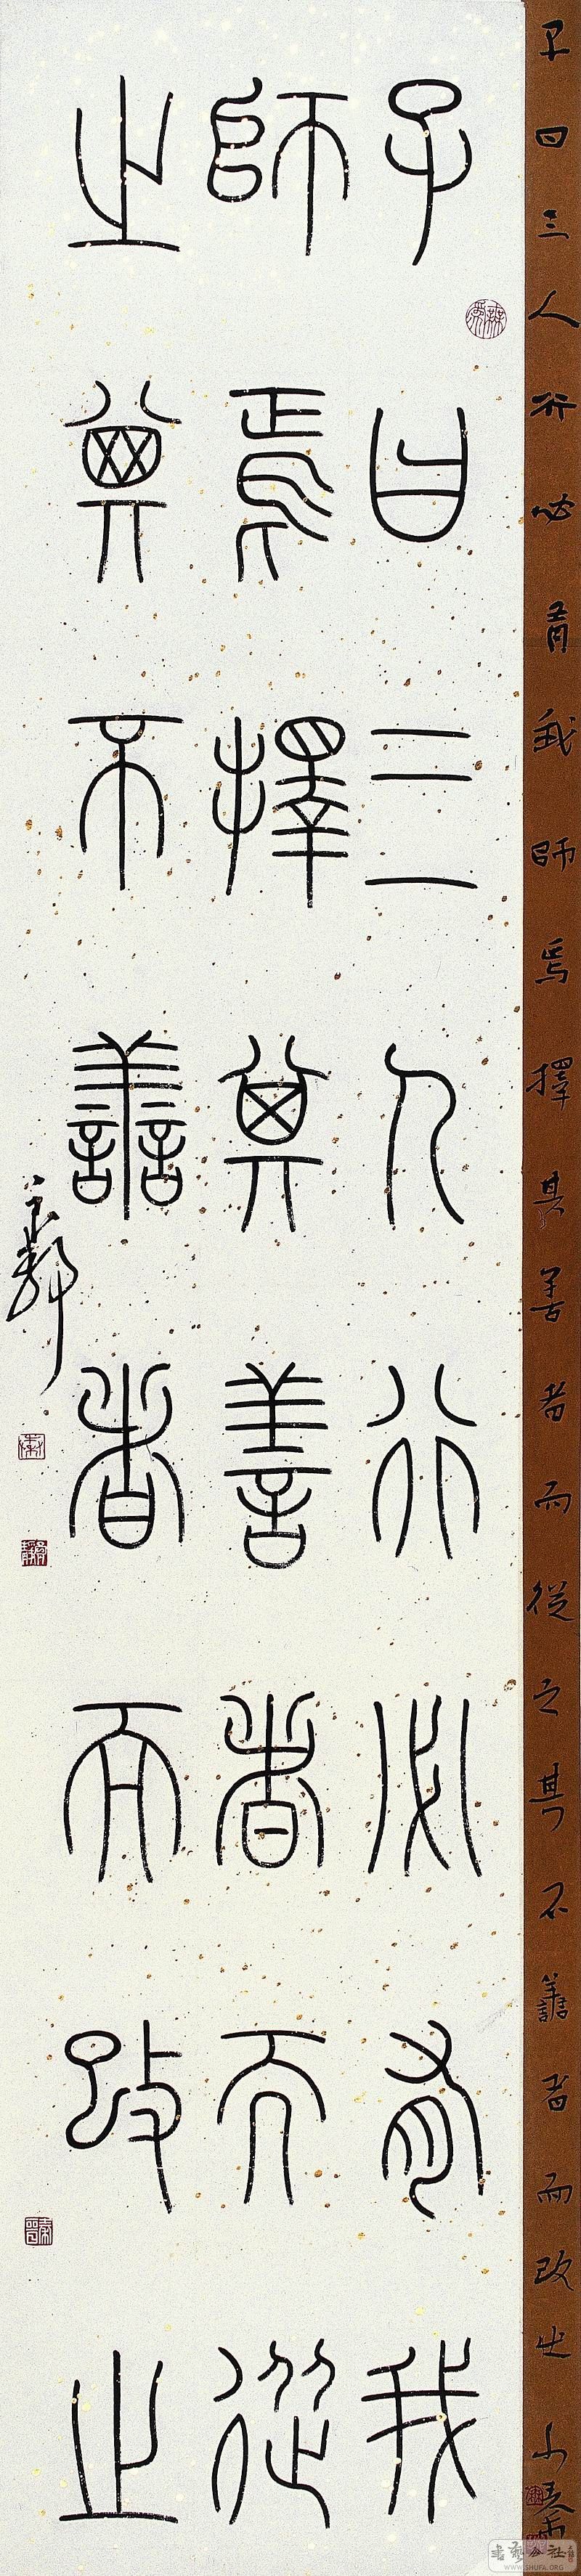 子曰三人行必有我師焉擇其善者而從之其不譱者而改之
子曰三人行必有我
師焉擇其善者而從
之其不譱者而改之
書藝公社
WWW.SHUFA.ORG